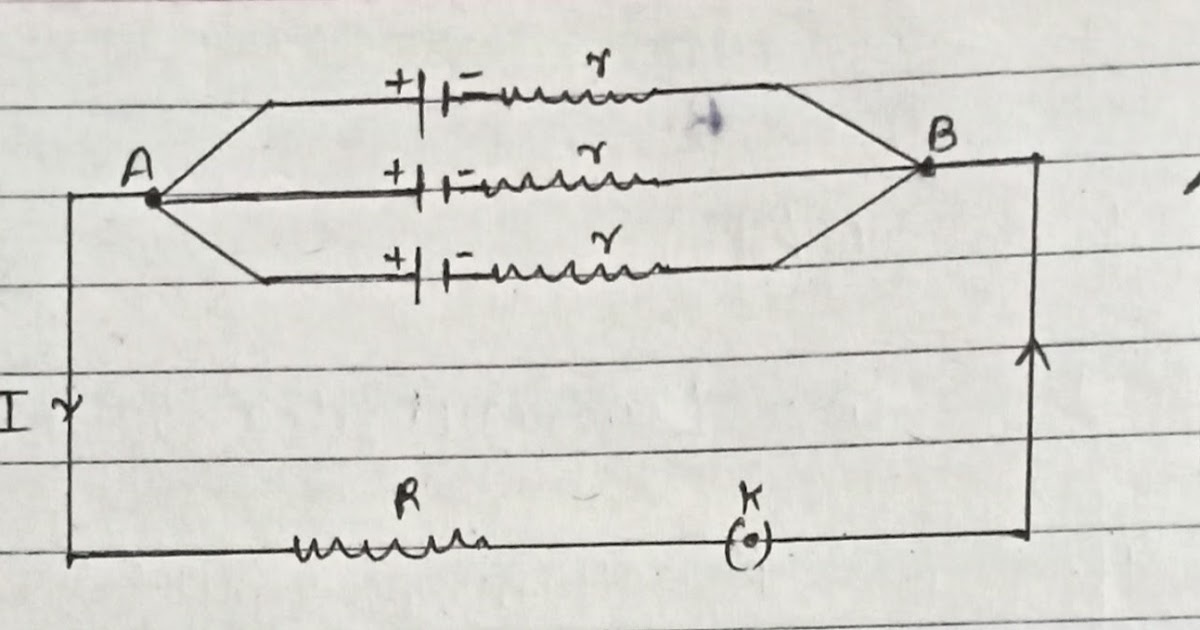 + - r
A + - r B
+ - r
I
R K
(•)